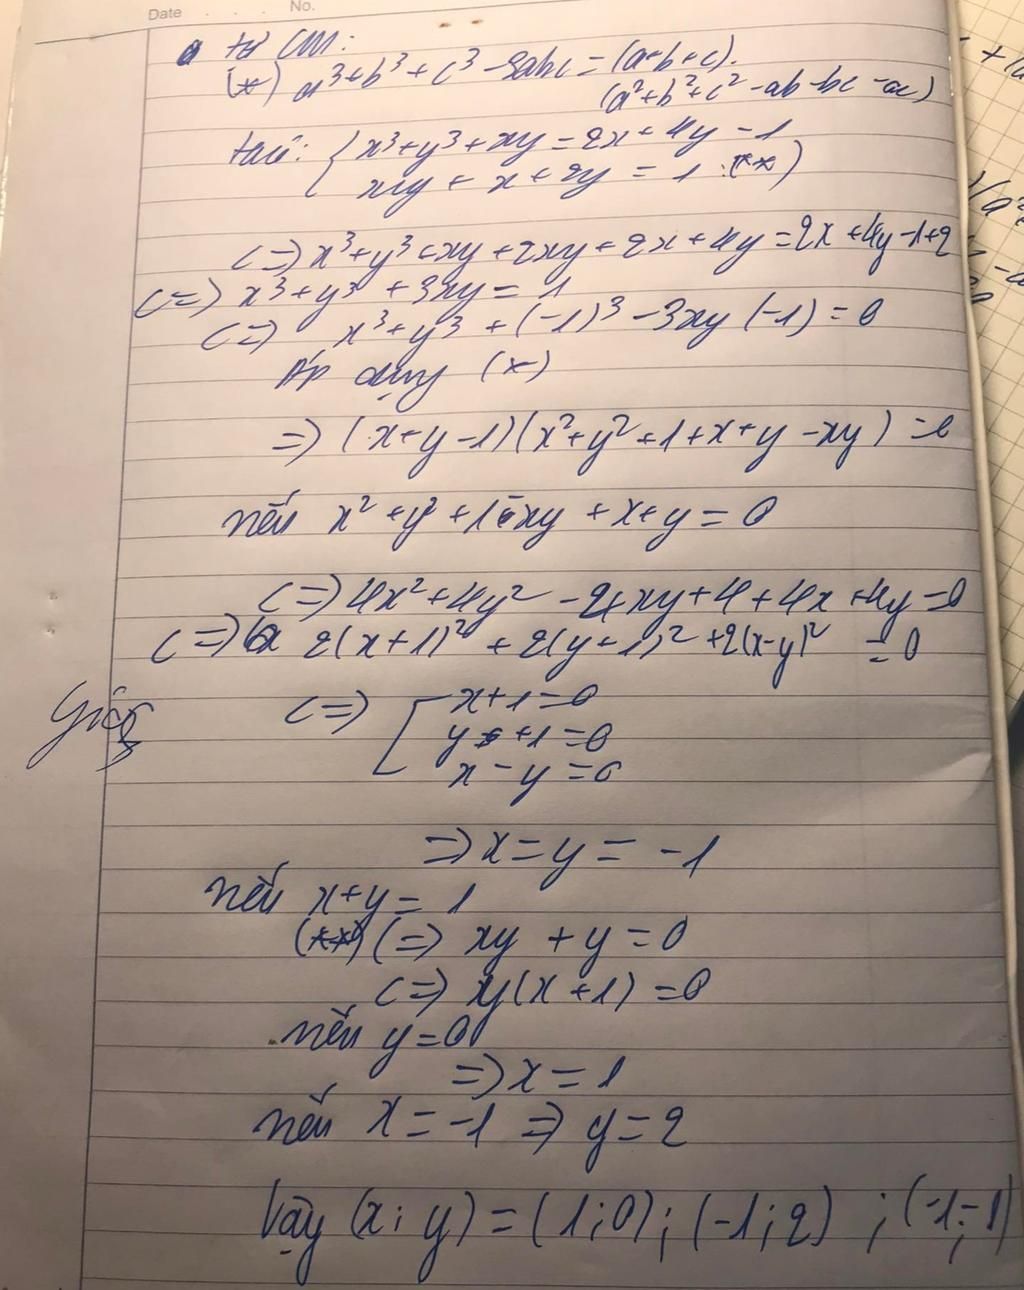 Date No.
tự CM:
(*) a³+b³+c³-3abc=(a+b+c).
(a²+b²+c²-ab-bc-ac)
ta có: { x³+y³+xy=2x+4y-1
xy+x+2y=1 (**)
<=> x³+y³+xy+2xy+2x+4y=2x+4y-1+2
<=> x³+y³+3xy=1
<=> x³+y³+(-1)³-3xy(-1)=0
Áp dụng (*)
=> (x+y-1)(x²+y²+1+x+y-xy)=0
nếu x²+y²+1-xy+x+y=0
<=> 4x²+4y²-4xy+4+4x+4y=0
<=> 2(x+1)²+2(y+1)²+2(x-y)²=0
<=> [ x+1=0
y+1=0
x-y=0
=> x=y=-1
nếu x+y=1
(**) <=> xy+y=0
<=> y(x+1)=0
nếu y=0
=> x=1
nếu x=-1 => y=2
Vậy (x;y)=(1;0);(-1;2);(-1;-1)